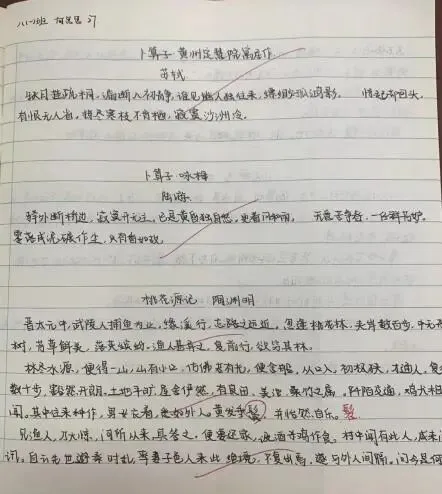 卜算子·黄州定慧院寓居作
苏轼
缺月挂疏桐,漏断人初静,谁见幽人独往来,缥缈孤鸿影。 惊起却回头,
有恨无人省,拣尽寒枝不肯栖,寂寞沙洲冷。
卜算子·咏梅
陆游
驿外断桥边,寂寞开无主,已是黄昏独自愁,更着风和雨。 无意苦争春,一任群芳妒。
零落成泥碾作尘,只有香如故。
桃花源记 陶渊明
晋太元中,武陵人捕鱼为业,缘溪行,忘路之远近。忽逢桃花林,夹岸数百步,中无
树,芳草鲜美,落英缤纷。渔人甚异之,复前行,欲穷其林。
林尽水源,便得一山,山有小口,仿佛若有光,便舍船,从口入,初极狭,才通人,复
数十步,豁然开朗。土地平旷,屋舍俨然,有良田、美池、桑竹之属。阡陌交通,鸡犬相
闻。其中往来种作,男女衣着,悉如外人。黄发垂髫 并怡然自乐。髫
见渔人,乃大惊,问所从来,具答之,便要还家,设酒杀鸡作食。村中闻有此人,咸来问
讯。自云先世避秦时乱,率妻子邑人来此绝境,不复出焉,遂与外人间隔。问今是何